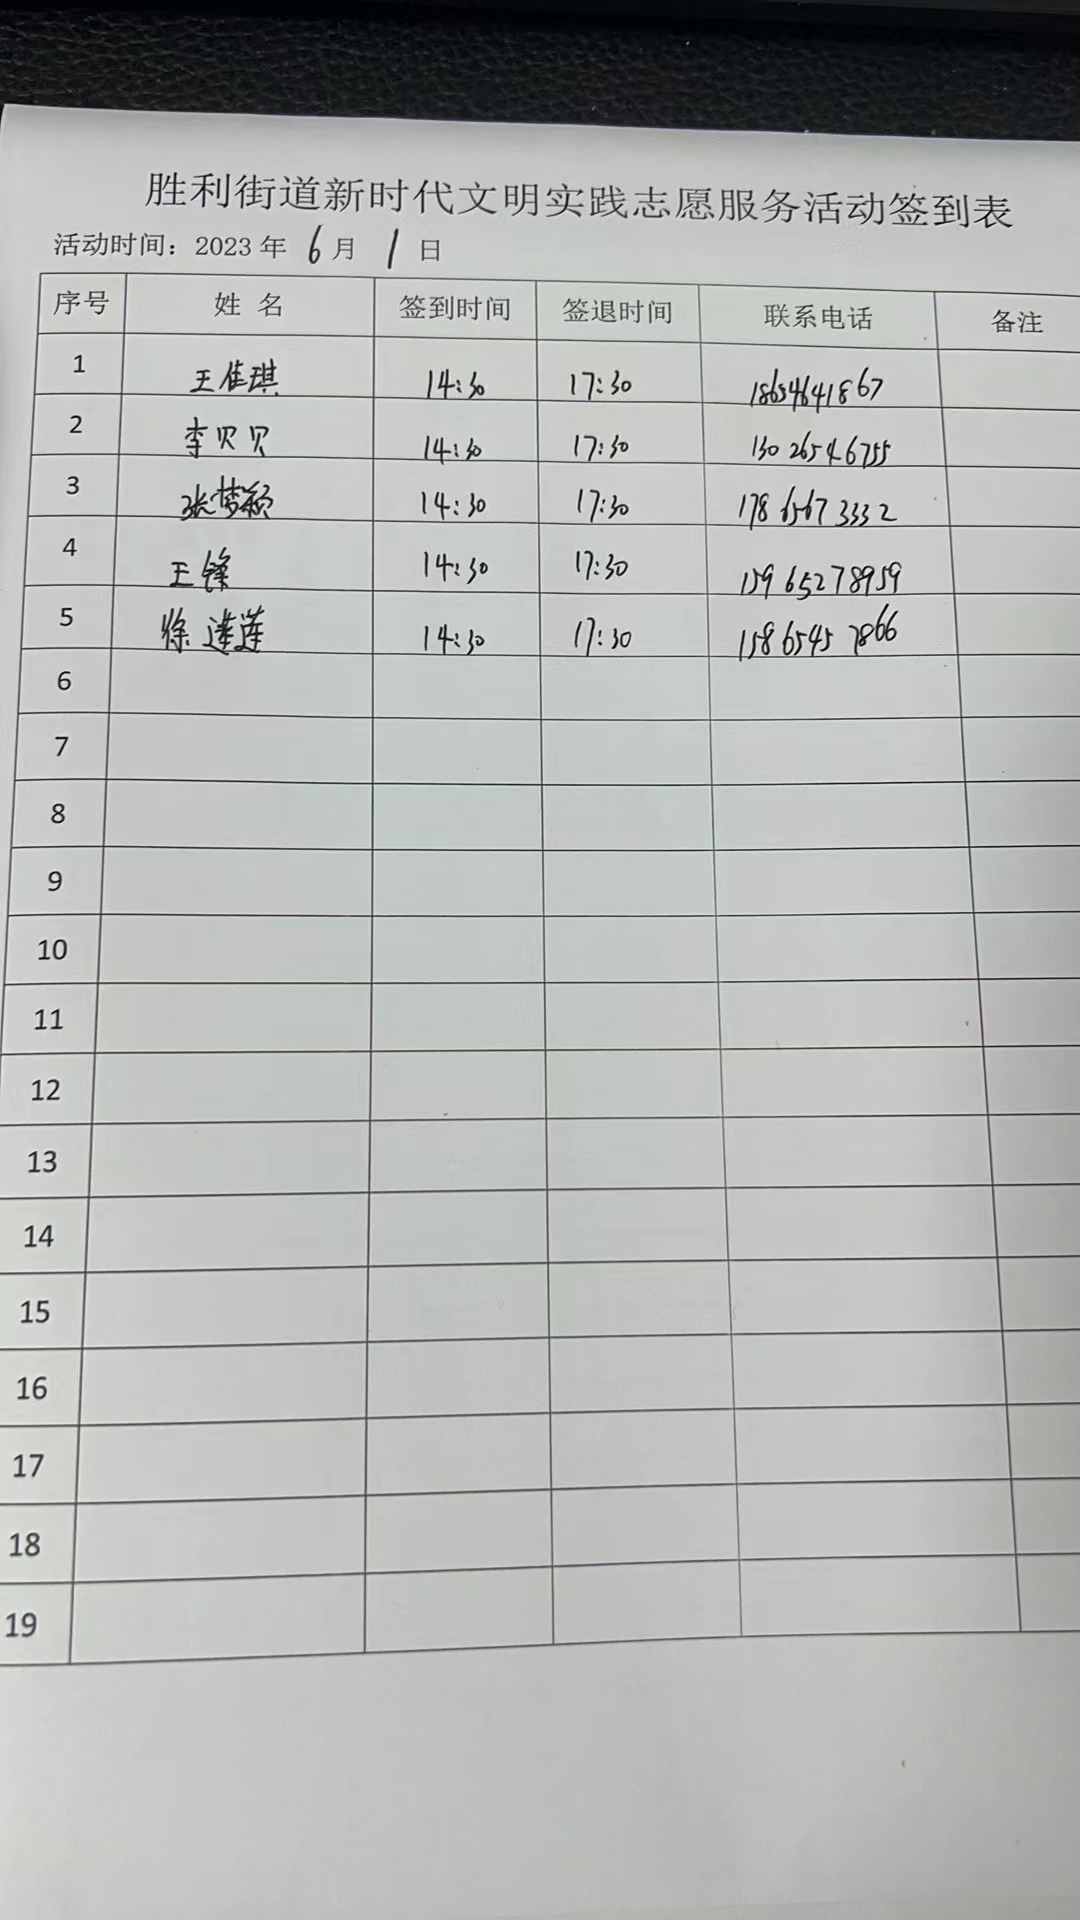 胜利街道新时代文明实践志愿服务活动签到表
活动时间：2023 年 6 月 1 日
序号 姓 名 签到时间 签退时间 联系电话 备注
1 王佳琪 14:30 17:30 18654641867
2 李贝贝 14:30 17:30 130 2654 6755
3 张梦颖 14:30 17:30 178 6567 3332
4 王锋 14:30 17:30 159 65278959
5 徐莲莲 14:30 17:30 158 6545 7866
6
7
8
9
10
11
12
13
14
15
16
17
18
19